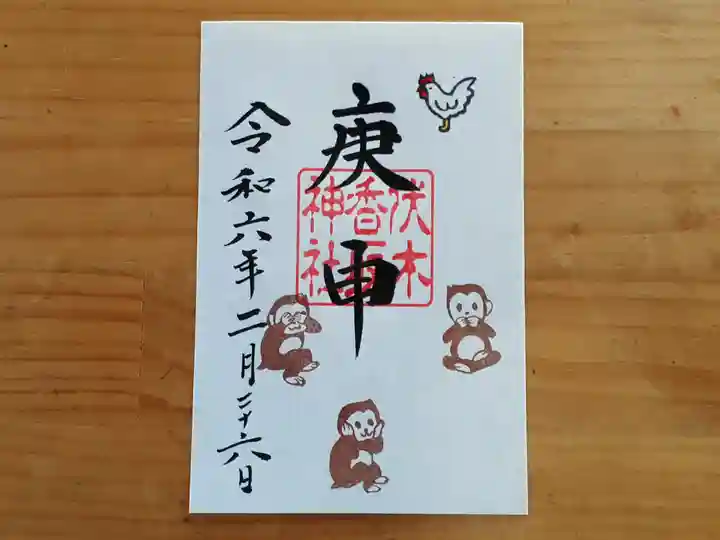 庚申
伏木
香取
神社
令和六年二月二十六日